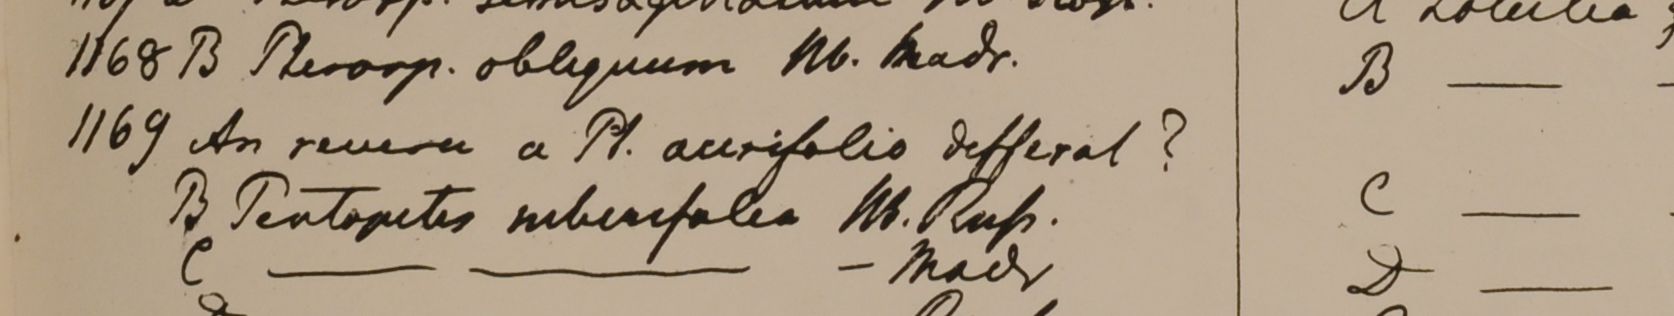 1168 B Pterosp. obliquum Hb. Madr.
1169 An revera a Pt. acerifolio differat?
B Pentapetes suberifolia Hb. Russ.
C — — — Madr
B —
C —
D —